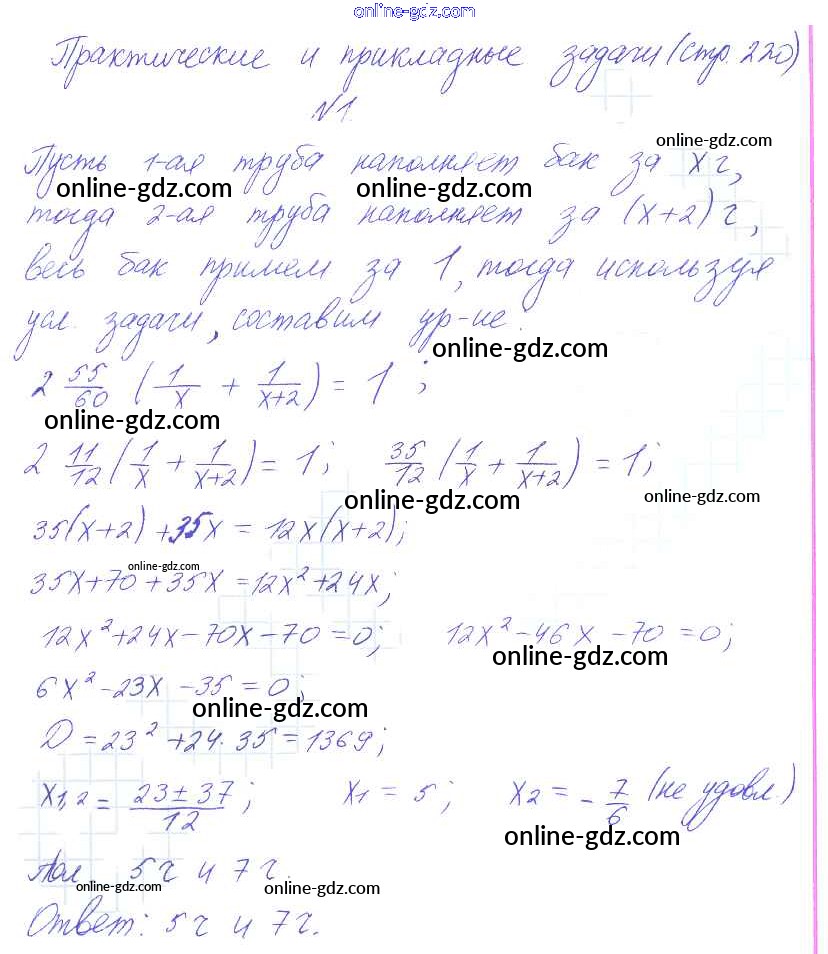 online-gdz.com
Практические и прикладные задачи (стр. 220)
№1
online-gdz.com
Пусть 1-ая труба наполняет бак за x ч,
online-gdz.com online-gdz.com
тогда 2-ая труба наполняет за (x+2) ч,
весь бак примем за 1, тогда используя
усл. задачи, составим ур-ие:
online-gdz.com
2 55/60 (1/x + 1/(x+2)) = 1;
online-gdz.com
2 11/12 (1/x + 1/(x+2)) = 1; 35/12 (1/x + 1/(x+2)) = 1;
online-gdz.com online-gdz.com
35(x+2) + 35x = 12x(x+2);
online-gdz.com
35x+70+35x = 12x²+24x;
12x²+24x-70x-70=0; 12x²-46x-70=0;
online-gdz.com
6x²-23x-35=0;
online-gdz.com
D = 23²+24·35=1369;
x1,2 = (23±37)/12; x1 = 5; x2 = -7/6 (не удовл.)
online-gdz.com
5ч и 7ч.
online-gdz.com online-gdz.com
Ответ: 5ч и 7ч.